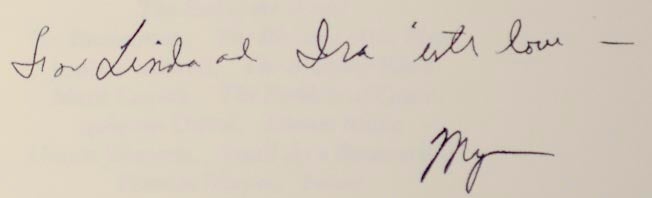 For Linda and Ira with love —